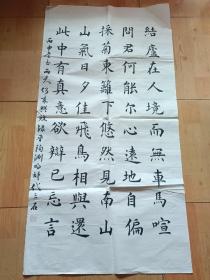 結廬在人境而無車馬喧
問君何能尔心遠地自偏
採菊東籬下悠然見南山
山氣日夕佳飛鳥相與還
此中有真意欲辯已忘言
丙申 陶渊明詩